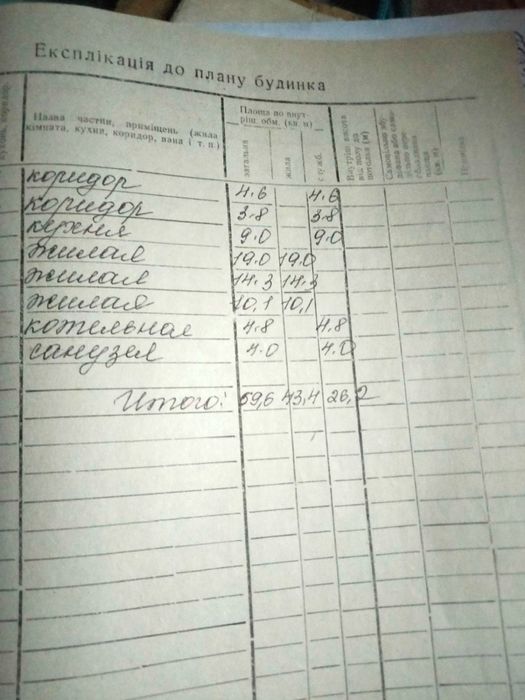 Експлікація до плану будинка
Назва частин, приміщень (жила кімната, кухня, коридор, вана і т. п.)
Площа по внутріш. обм. (кв. м)
загальна
жила
служб.
Внутрішн. висота від полу до потолка (м)
коридор 4.6 4.6
коридор 3.8 3.8
кухня 9.0 9.0
жилая 19.0 19.0
жилая 14.3 14.3
жилая 10,1 10,1
котельная 4.8 4.8
санузел 4.0 4.0
Итого: 69,6 43,4 26,2